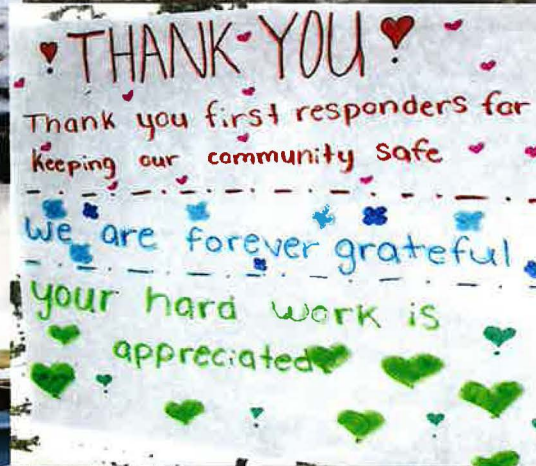 THANK YOU
Thank you first responders for
keeping our community safe
we are forever grateful
your hard work is
appreciated